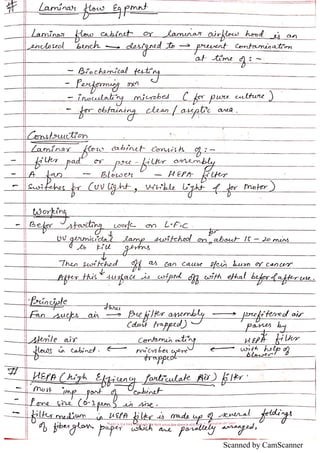 # Laminar flow Eqpmnt
Laminar flow cabinet or laminar airflow hood is an
enclosed bench → designed to → prevent contamination
at time of :-
- Biochemical testing
- Performing
- inoculating microbes ( for pure culture )
- for obtaining clean / aseptic area.
Construction
Laminar flow cabinet consists of :-
- filter pad or pre-filter assembly
- A fan - Blower - HEPA filter
- Switches for (UV light, visible light & for motor)
Working
- Befor starting work on L.F.C
UV germicidal lamp switched on for about 15 - 20 mins
to kill germs
Then switched off as can cause skin burn or cancer
After this surface is wiped off with ethal before & after use.
Principle
Fan sucks air thru → Prefilter assembly → prefiltered air
(dust trapped) passes by
sterile air ← contaminating ← HEPA filter
flows in cabinet. microbes were trapped with help of
blower
HEPA (high Efficiency Particulate Air) filter.
- most imp part of cabinet
- Pore size (0.3 µm) in size.
- filter medium in HEPA filter is made up of several foldings
of fiberglass paper which are parallely arranged.
Scanned by CamScanner